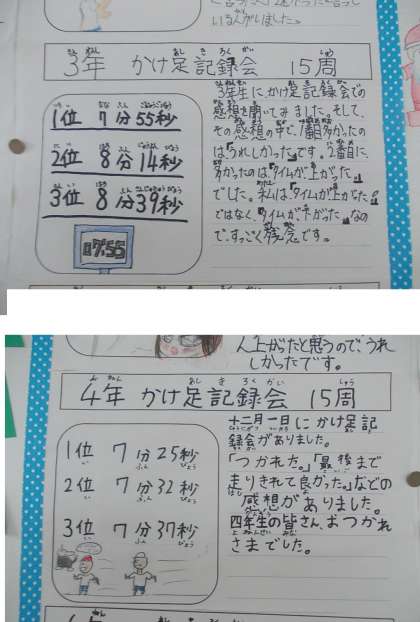 いるんがしました。
3年 かけ足記録会 15周
1位 7分55秒
2位 8分14秒
3位 8分39秒
07:55
3年生に、かけ足記録会での
感想を聞いてみました。そして、
その感想の中で、1番多かったの
は、「うれしかった」です。2番目に、
多かったのは、「タイムが上がった」
でした。私は、「タイムが上がった」
ではなく、「タイムが下がった」なの
で、すっごく残念です。
ん上がったと思うので、うれ
しかったです。
4年 かけ足記録会 15周
1位 7分25秒
2位 7分32秒
3位 7分37秒
十二月一日にかけ足記
録会がありました。
「つかれた。」「最後まで
走りきれて良かった。」などの
感想がありました。
四年生の皆さん、おつかれ
さまでした。